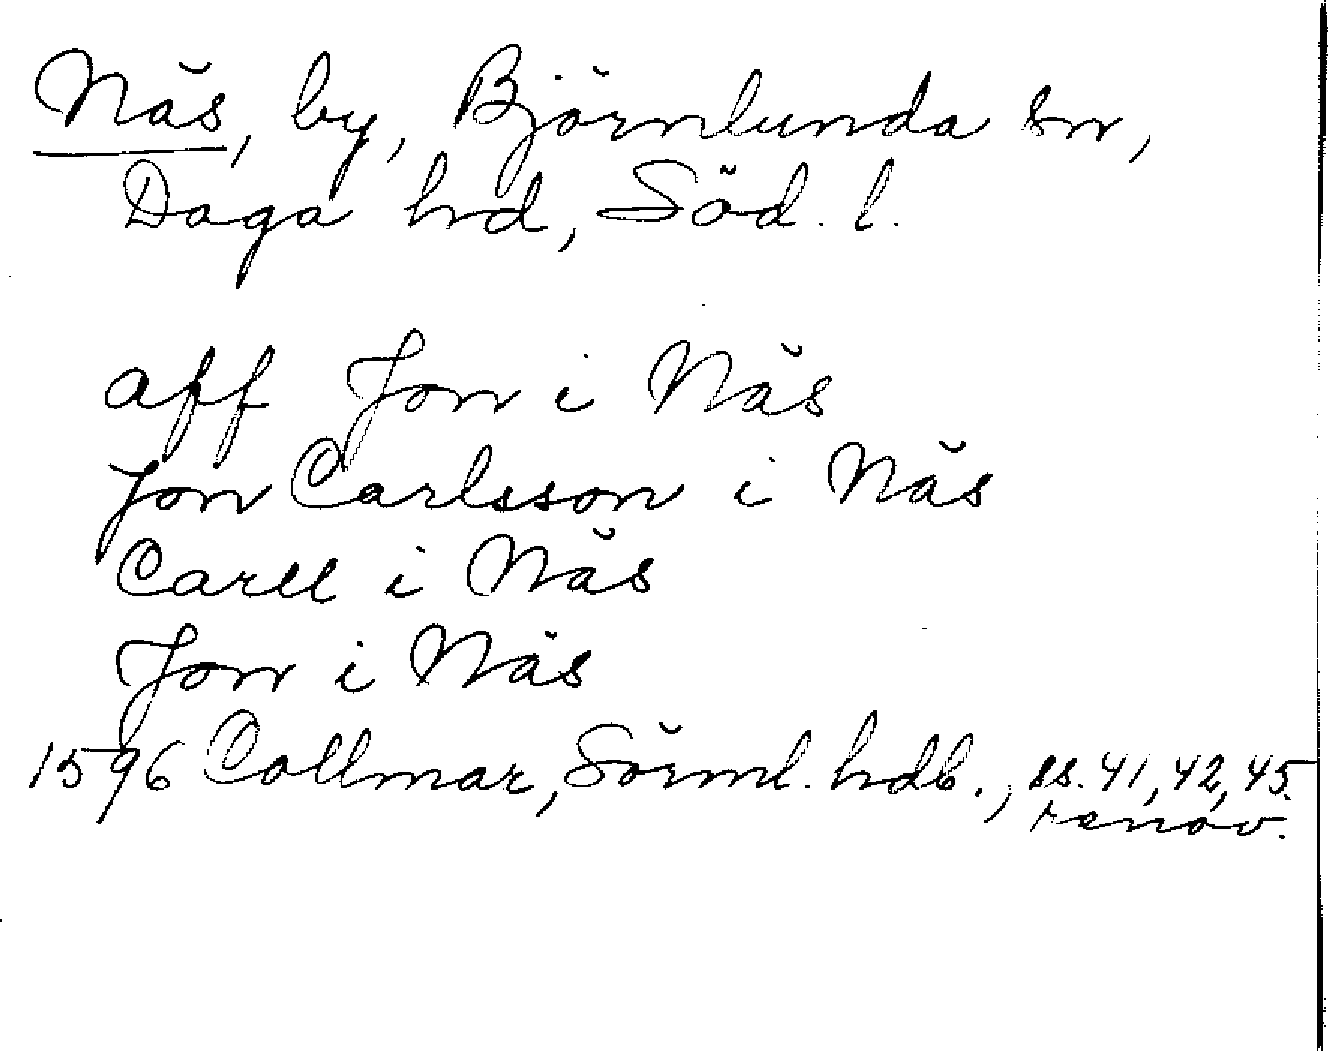 Näs, by, Björnlunda sn,
Daga hd, Söd. l.
aff Jon i Näs
Jon Carlsson i Näs
Carll i Näs
Jon i Näs
1596 Collmar, Sörml. hdb., ss. 41, 42, 45.
renov.